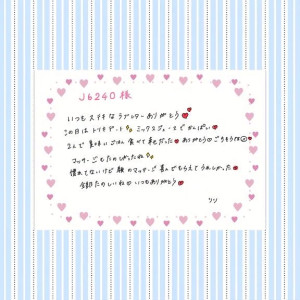 J6240様
いつもステキなラブレターありがとう
この日はトリキデート ミックスジュースでかんぱい
2人で美味しいごはん食べて幸せだった ありがとう ごちそうさま
マッサージもたのしかったね
慣れてないけど 腕のマッサージ 喜んでもらえてうれしかった
全部たのしいね いつもありがとう
リリ